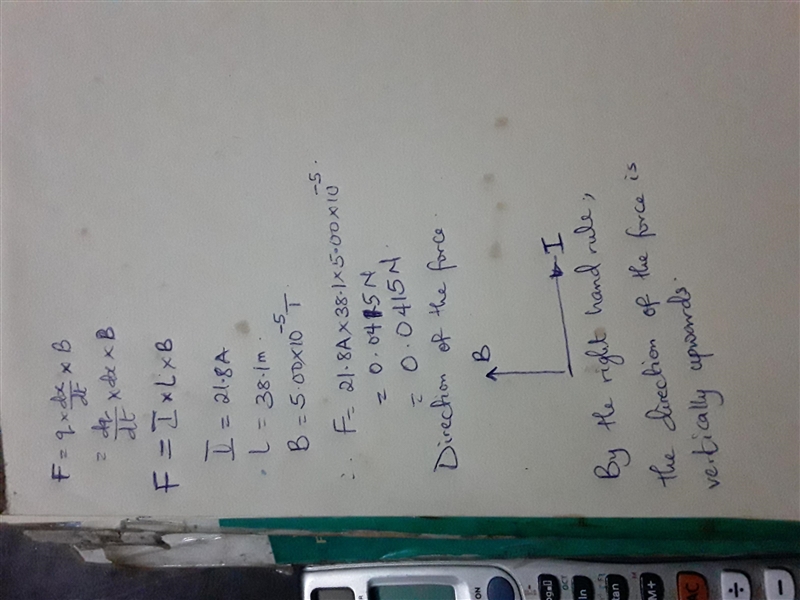 F = q × dx/dt × B
= dq/dt × dx × B
F = I × L × B
I = 21.8A
L = 38.1m.
B = 5.00×10⁻⁵ T.
∴ F = 21.8A×38.1×5.00×10⁻⁵.
= 0.0415N
= 0.0415N.
Direction of the force.
B
I
By the right hand rule,
the direction of the force is
vertically upwards.
ON
OCT
log
ln
tan
M+
M
AC
÷
−